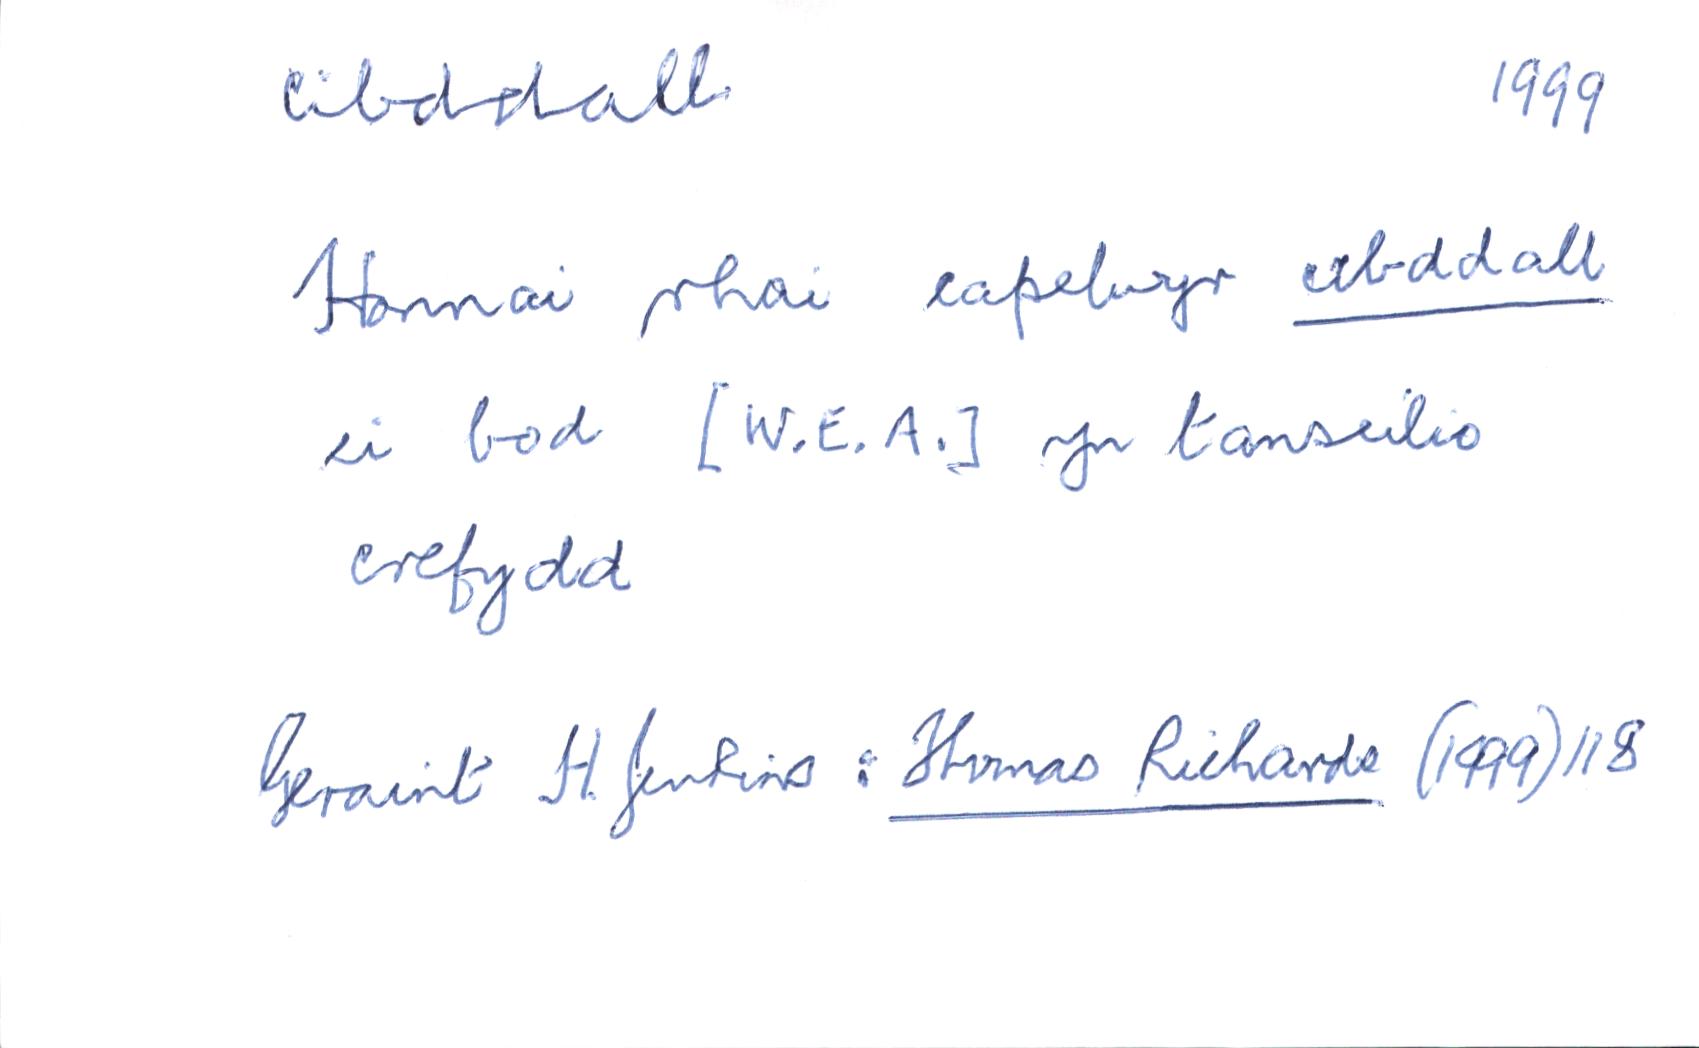 cibddall 1999
Honnai rhai capelwyr cibddall
ei bod [W.E.A.] yn tanseilio
crefydd
Geraint H. Jenkins : Thomas Richards (1999) 118